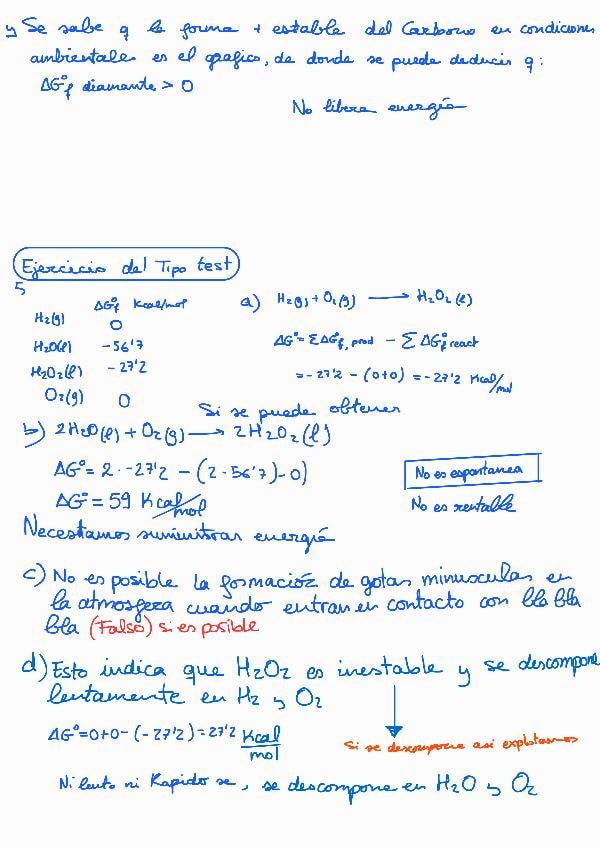 y Se sabe q la forma + estable del Carbono en condiciones
ambientales es el grafico, de donde se puede deducir q:
ΔG°f diamante > 0
No libera energía
Ejercicio del Tipo test
5
ΔG°f Kcal/mol
H₂(g) 0
H₂O(l) -56'7
H₂O₂(l) -27'2
O₂(g) 0
a) H₂(g) + O₂(g) ⟶ H₂O₂(l)
ΔG° = ΣΔG°f, prod - ΣΔG°f react
= -27'2 - (0+0) = -27'2 Kcal/mol
Si se puede obtener
b) 2H₂O(l) + O₂(g) ⟶ 2H₂O₂(l)
ΔG° = 2·-27'2 - (2·56'7)-0)
No es espontanea
ΔG° = 59 Kcal/mol
No es rentable
Necestamos suministrar energía
c) No es posible la formación de gotas minusculas en
la atmosfera cuando entran en contacto con bla bla
bla (Falso) si es posible
d) Esto indica que H₂O₂ es inestable y se descompone
lentamente en H₂ y O₂
ΔG° = 0+0-(-27'2) = 27'2 Kcal/mol
Si se descompone asi explotamos
Ni lento ni Rapido se, se descompone en H₂O y O₂